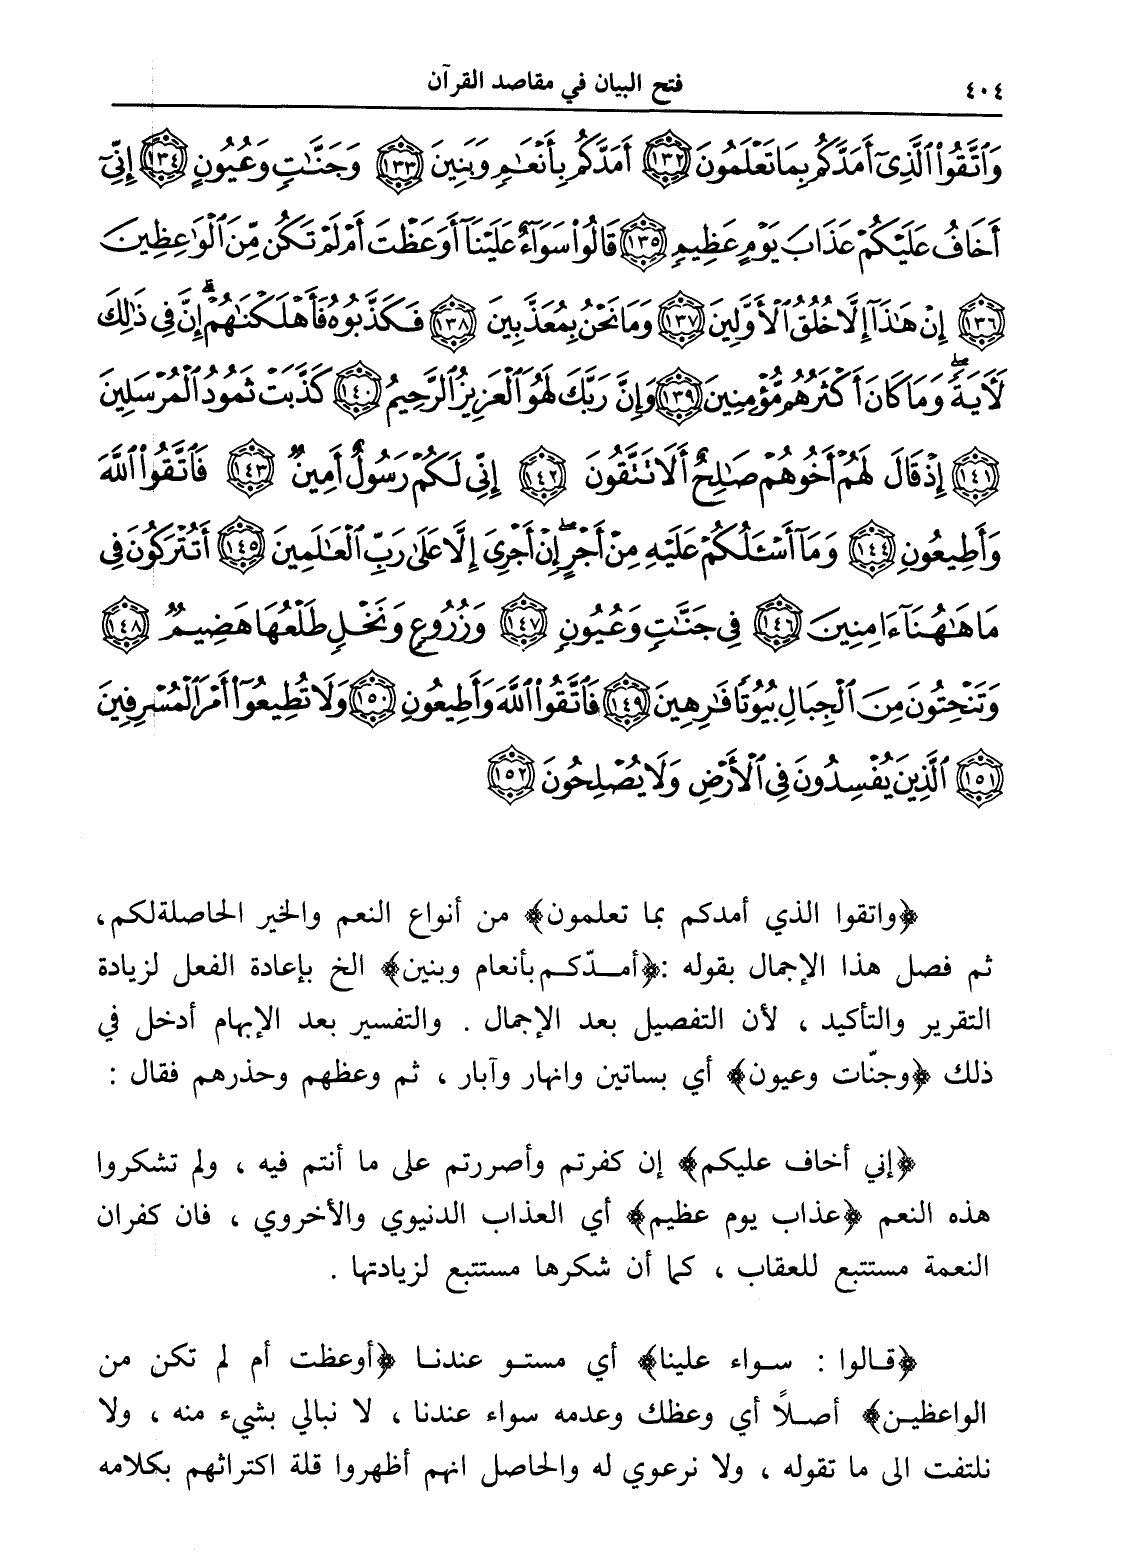 ٤٠٤ فتح البيان في مقاصد القرآن
وَٱتَّقُوا۟ ٱلَّذِىٓ أَمَدَّكُم بِمَا تَعْلَمُونَ ١٣٢ أَمَدَّكُم بِأَنْعَٰمٍ وَبَنِينَ ١٣٣ وَجَنَّٰتٍ وَعُيُونٍ ١٣٤ إِنِّىٓ
أَخَافُ عَلَيْكُمْ عَذَابَ يَوْمٍ عَظِيمٍ ١٣٥ قَالُوا۟ سَوَآءٌ عَلَيْنَآ أَوَعَظْتَ أَمْ لَمْ تَكُن مِّنَ ٱلْوَٰعِظِينَ
١٣٦ إِنْ هَٰذَآ إِلَّا خُلُقُ ٱلْأَوَّلِينَ ١٣٧ وَمَا نَحْنُ بِمُعَذَّبِينَ ١٣٨ فَكَذَّبُوهُ فَأَهْلَكْنَٰهُمْ ۗ إِنَّ فِى ذَٰلِكَ
لَءَايَةً ۖ وَمَا كَانَ أَكْثَرُهُم مُّؤْمِنِينَ ١٣٩ وَإِنَّ رَبَّكَ لَهُوَ ٱلْعَزِيزُ ٱلرَّحِيمُ ١٤٠ كَذَّبَتْ ثَمُودُ ٱلْمُرْسَلِينَ
١٤١ إِذْ قَالَ لَهُمْ أَخُوهُمْ صَٰلِحٌ أَلَا تَتَّقُونَ ١٤٢ إِنِّى لَكُمْ رَسُولٌ أَمِينٌ ١٤٣ فَٱتَّقُوا۟ ٱللَّهَ
وَأَطِيعُونِ ١٤٤ وَمَآ أَسْـَٔلُكُمْ عَلَيْهِ مِنْ أَجْرٍ ۖ إِنْ أَجْرِىَ إِلَّا عَلَىٰ رَبِّ ٱلْعَٰلَمِينَ ١٤٥ أَتُتْرَكُونَ فِى
مَا هَٰهُنَآ ءَامِنِينَ ١٤٦ فِى جَنَّٰتٍ وَعُيُونٍ ١٤٧ وَزُرُوعٍ وَنَخْلٍ طَلْعُهَا هَضِيمٌ ١٤٨
وَتَنْحِتُونَ مِنَ ٱلْجِبَالِ بُيُوتًا فَٰرِهِينَ ١٤٩ فَٱتَّقُوا۟ ٱللَّهَ وَأَطِيعُونِ ١٥٠ وَلَا تُطِيعُوٓا۟ أَمْرَ ٱلْمُسْرِفِينَ
١٥١ ٱلَّذِينَ يُفْسِدُونَ فِى ٱلْأَرْضِ وَلَا يُصْلِحُونَ ١٥٢
﴿واتقوا الذي أمدكم بما تعلمون﴾ من أنواع النعم والخير الحاصلة لكم،
ثم فصل هذا الإجمال بقوله :﴿أمدّكم بأنعام وبنين﴾ الخ بإعادة الفعل لزيادة
التقرير والتأكيد ، لأن التفصيل بعد الإجمال . والتفسير بعد الإبهام أدخل في
ذلك ﴿وجنّات وعيون﴾ أي بساتين وانهار وآبار ، ثم وعظهم وحذرهم فقال :
﴿إني أخاف عليكم﴾ إن كفرتم وأصررتم على ما أنتم فيه ، ولم تشكروا
هذه النعم ﴿عذاب يوم عظيم﴾ أي العذاب الدنيوي والأخروي ، فان كفران
النعمة مستتبع للعقاب ، كما أن شكرها مستتبع لزيادتها .
﴿قالوا : سواء علينا﴾ أي مستو عندنا ﴿أوعظت أم لم تكن من
الواعظين﴾ أصلاً أي وعظك وعدمه سواء عندنا ، لا نبالي بشيء منه ، ولا
نلتفت الى ما تقوله ، ولا نرعوي له والحاصل انهم أظهروا قلة اكتراثهم بكلامه